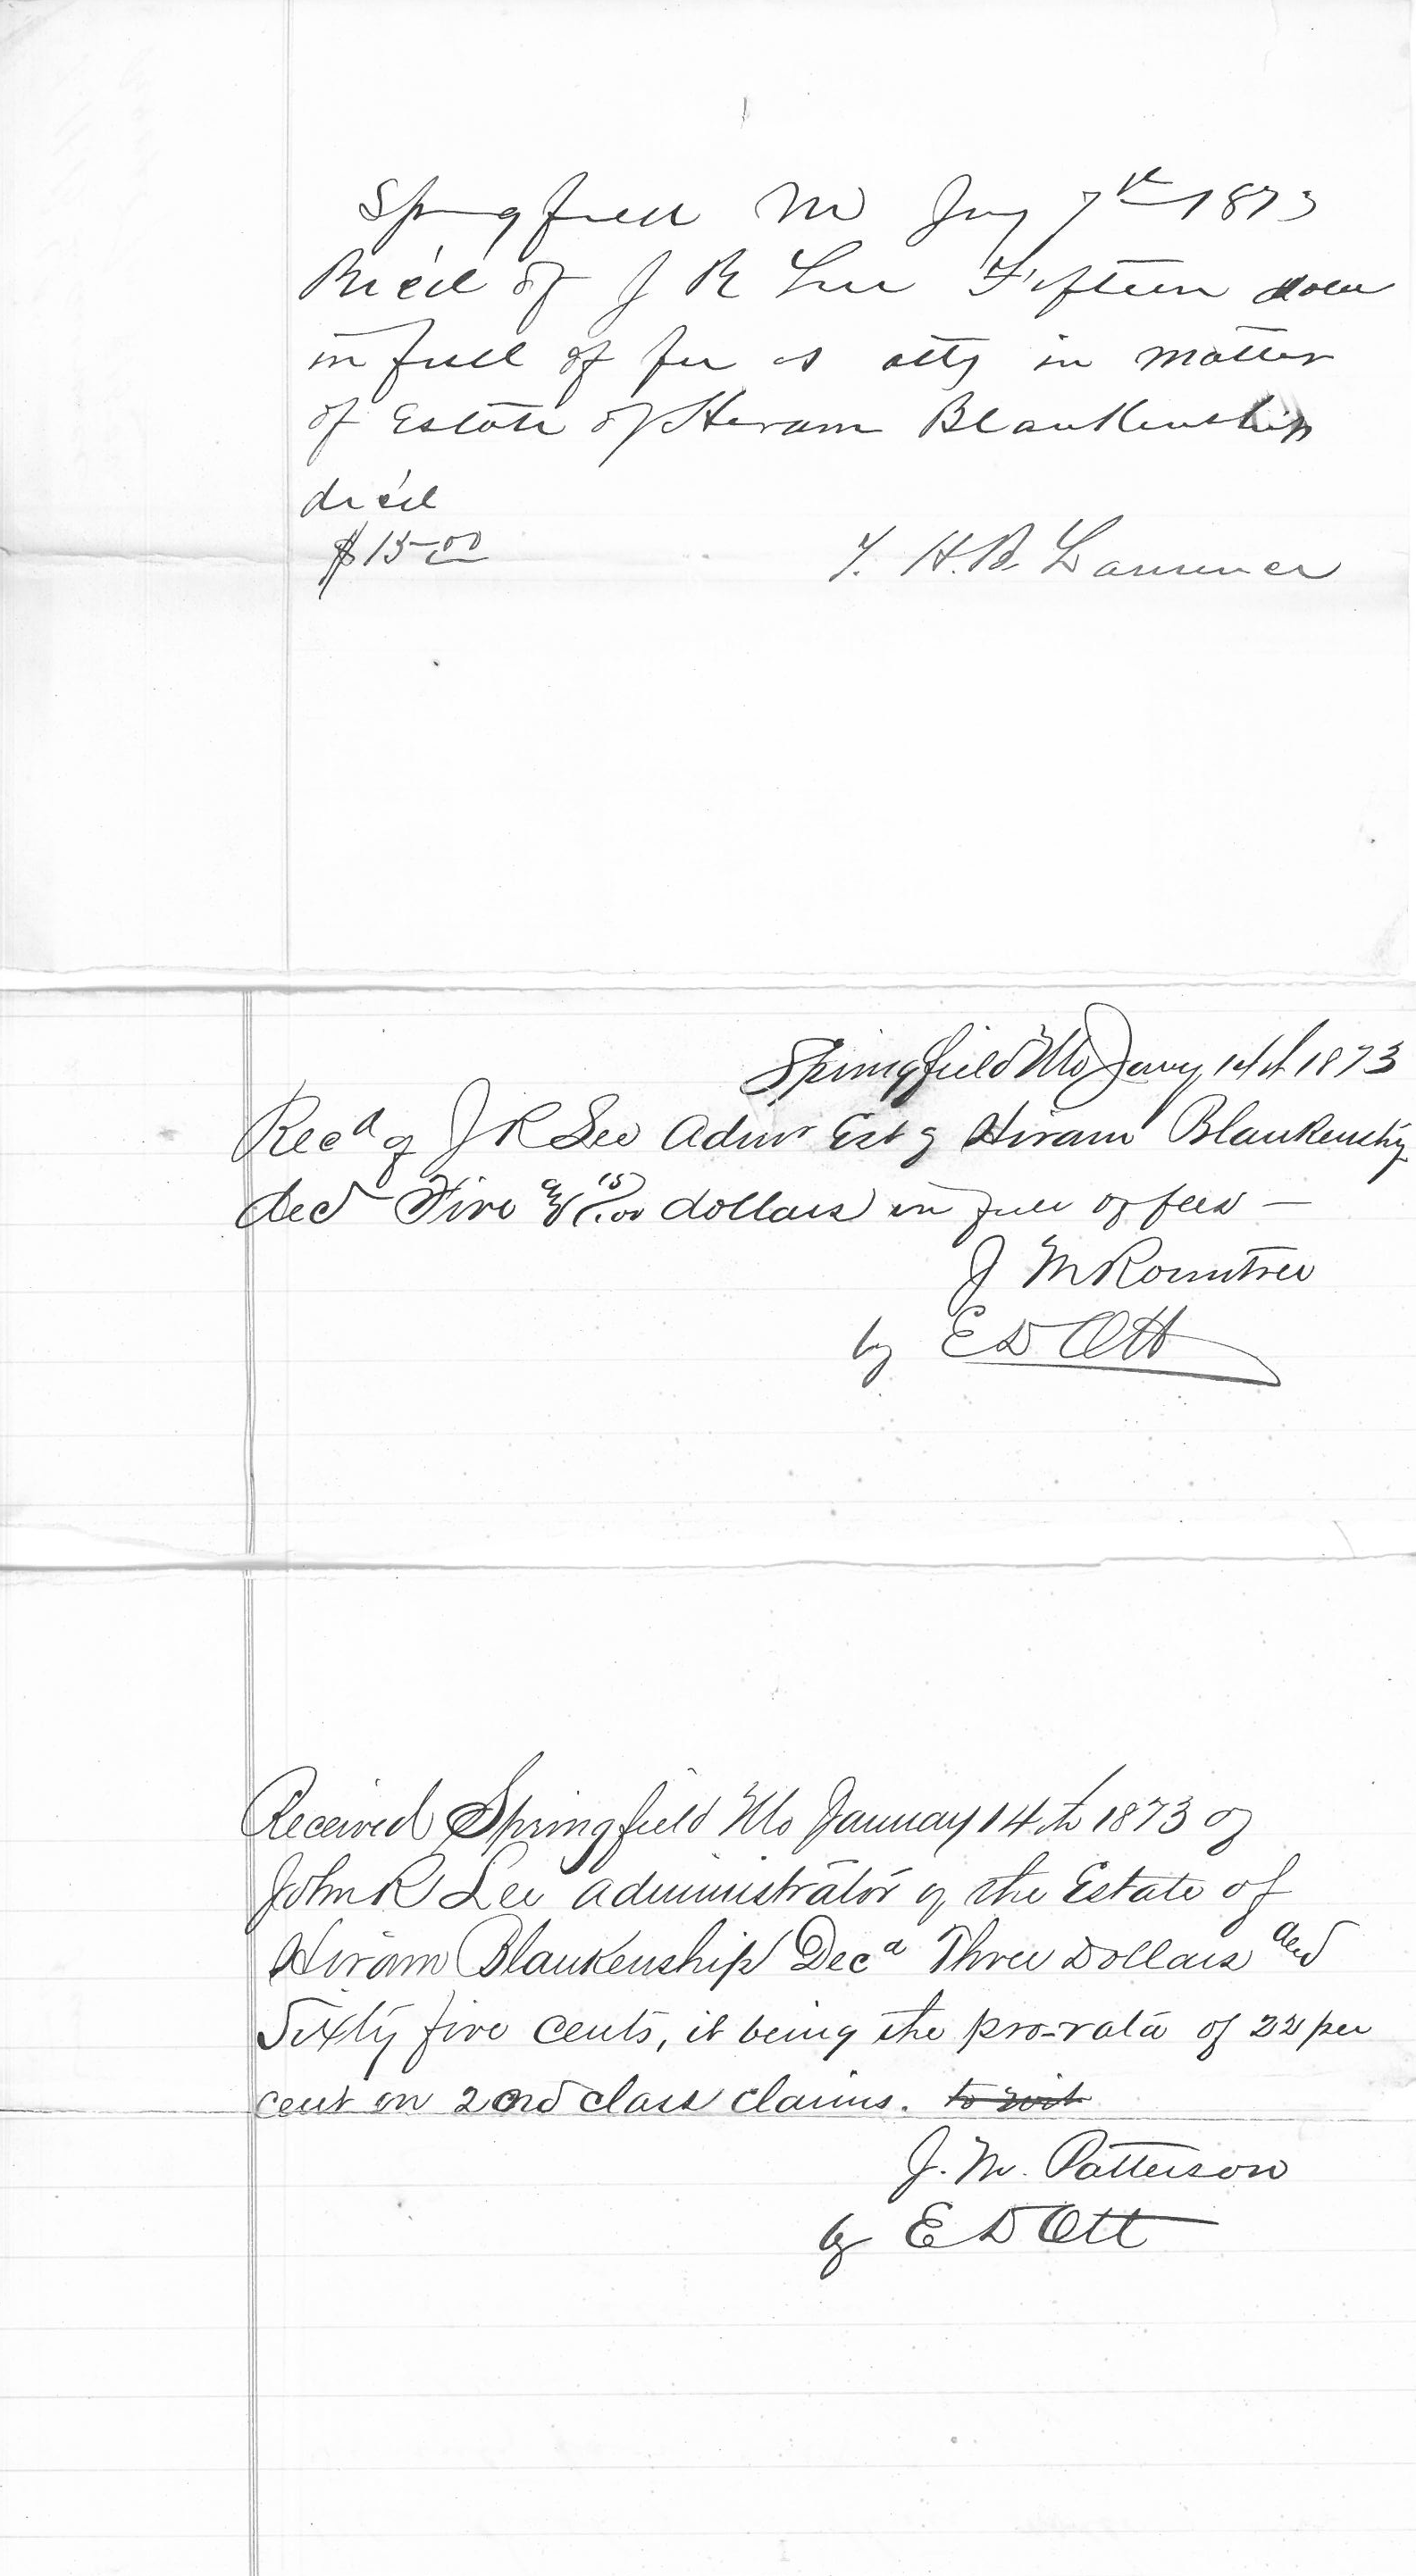 Springfield Mo Jany 7th 1873
Rec'd of J R Lee Fifteen
in full of fee as atty in matter
of Estate of Hiram Blankenship
dec'd
$15.00
T. H. B.
Springfield Mo Jany 14th 1873
Recd of J R Lee Admr Est of Hiram Blankenship
decd Five & 15/100 dollars in full of fees —
J M Rountree
by E D Ott
Received Springfield Mo January 14th 1873 of
John R Lee administrator of the Estate of
Hiram Blankenship Decd Three Dollars and
Sixty five cents, it being the pro-rata of 22 per
cent on 2nd class claims. to wit
J. M. Patterson
by E D Ott